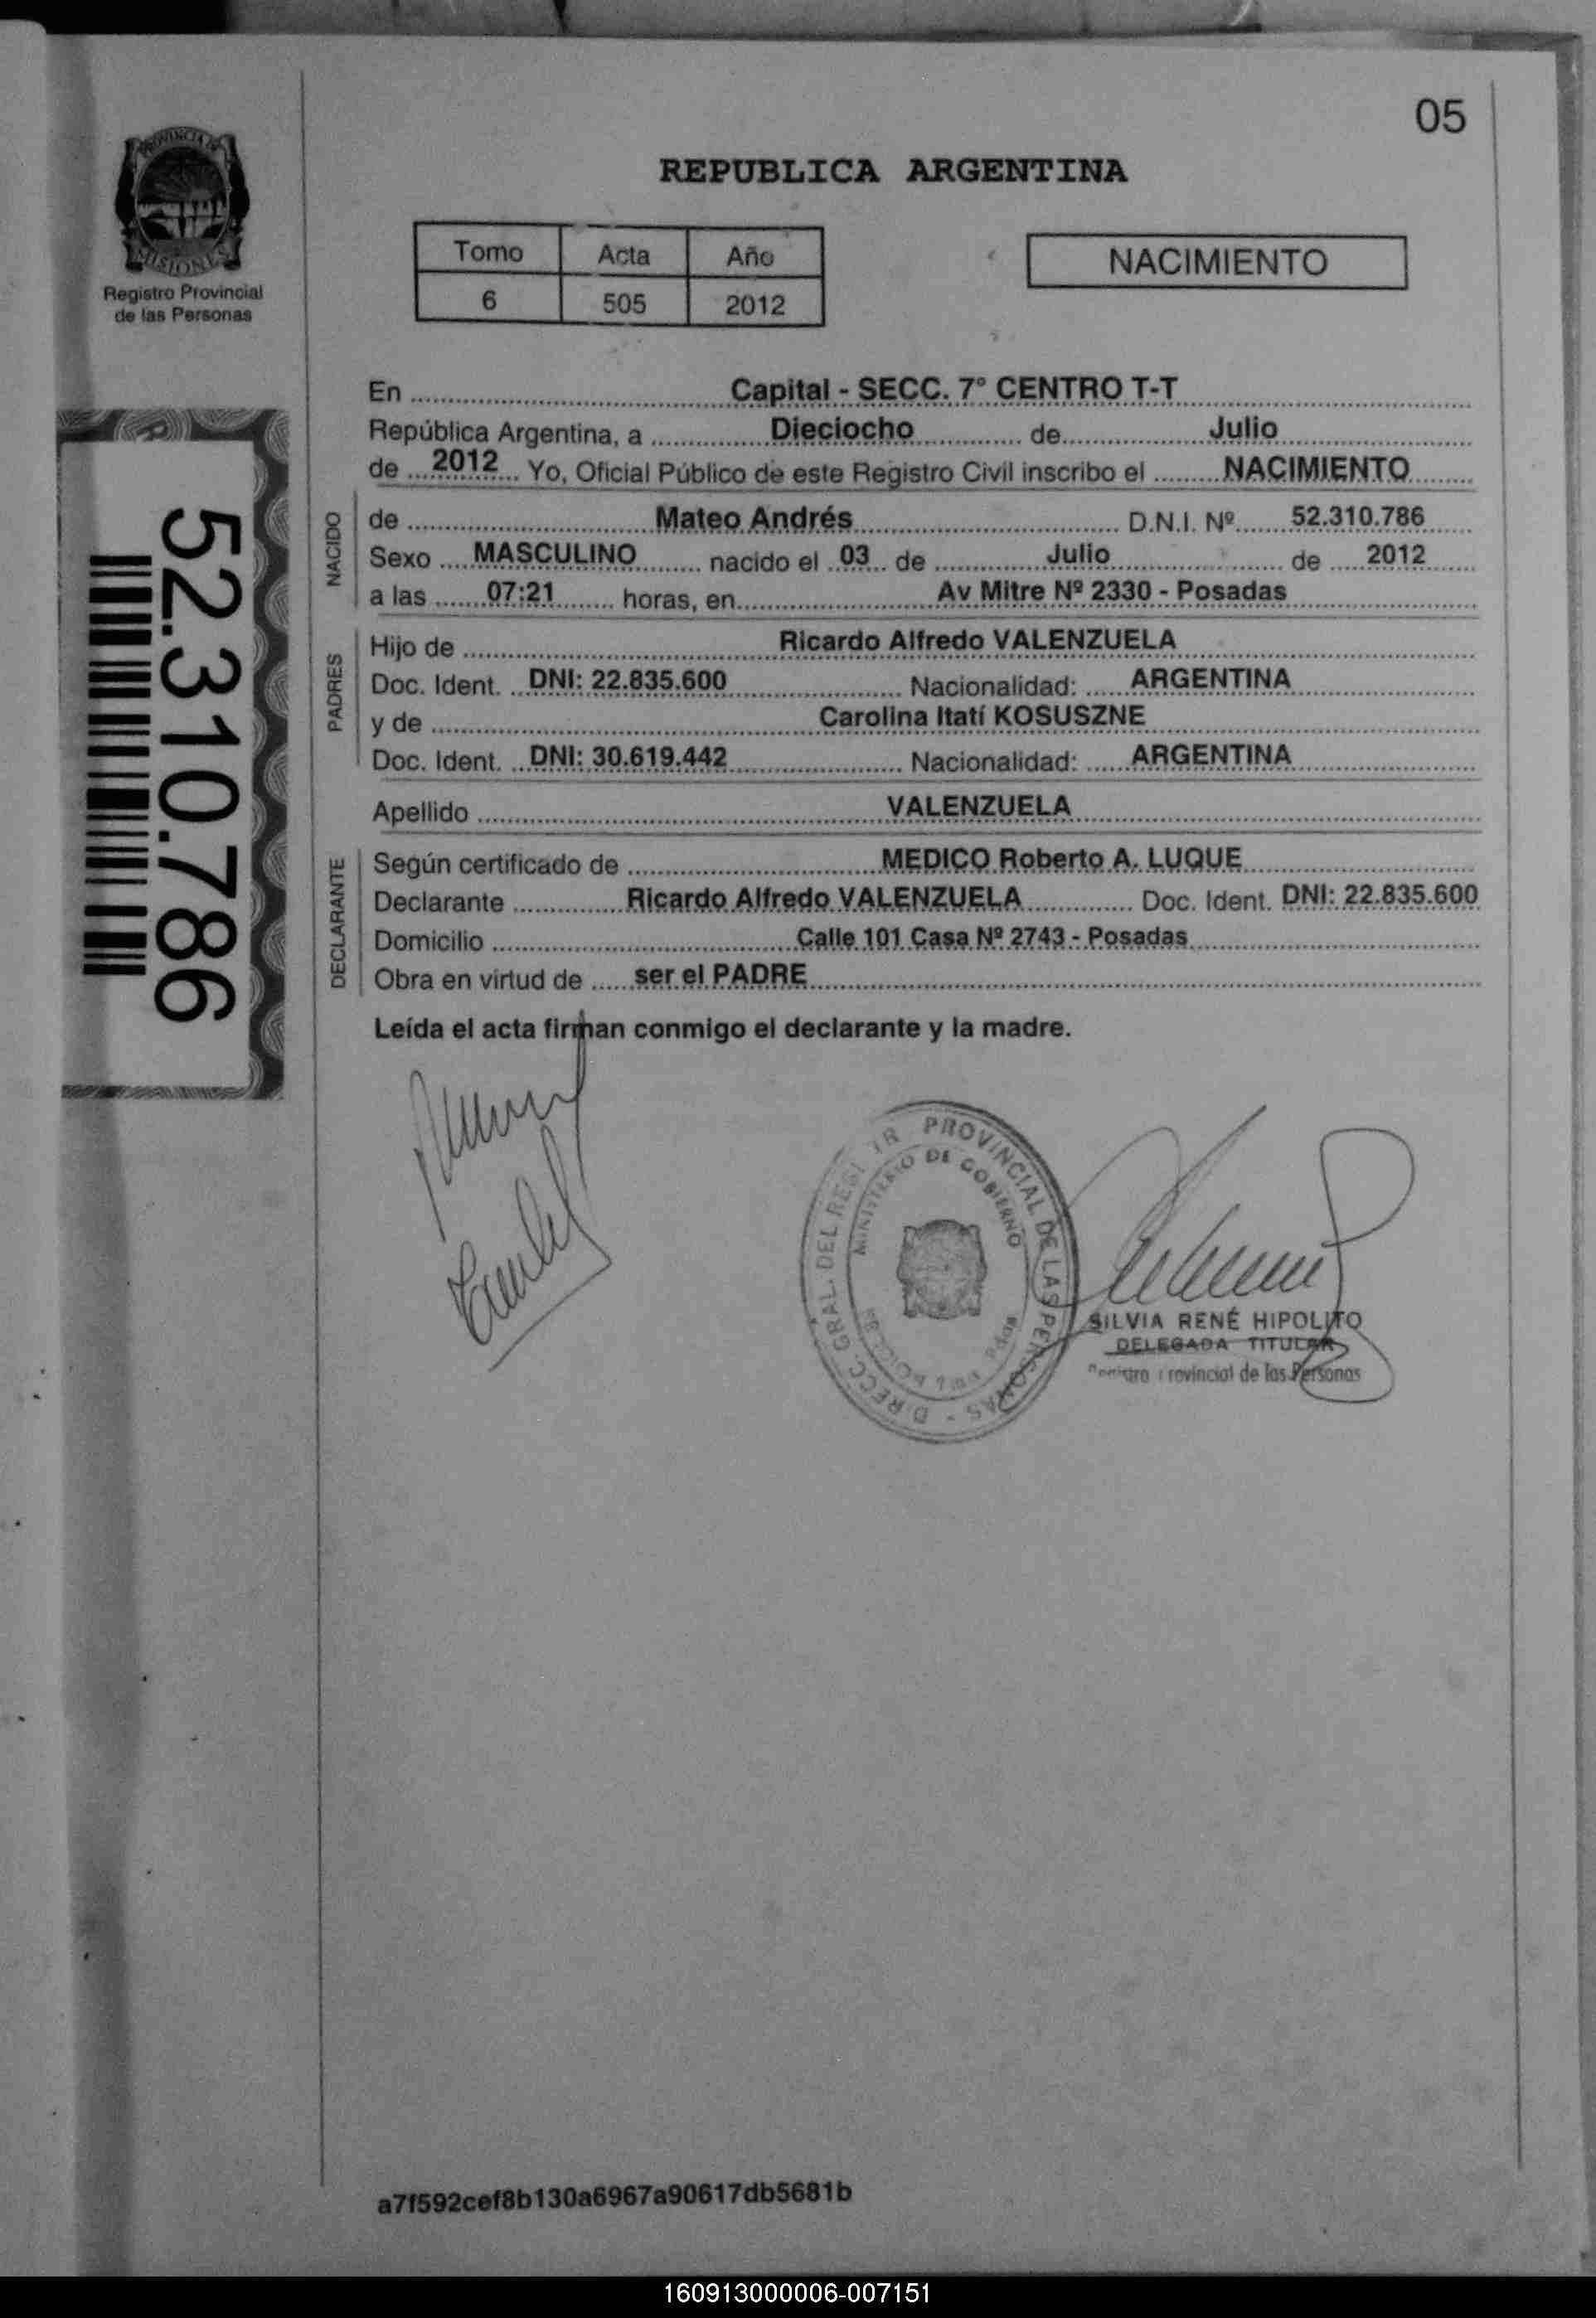 05
REPUBLICA ARGENTINA
PROVINCIA DE
MISIONES
Registro Provincial
de las Personas
Tomo Acta Año
6 505 2012
NACIMIENTO
En Capital - SECC. 7º CENTRO T-T
República Argentina, a Dieciocho de Julio
de 2012 Yo, Oficial Público de este Registro Civil inscribo el NACIMIENTO
NACIDO
de Mateo Andrés D.N.I. Nº 52.310.786
Sexo MASCULINO nacido el 03 de Julio de 2012
a las 07:21 horas, en Av Mitre Nº 2330 - Posadas
PADRES
Hijo de Ricardo Alfredo VALENZUELA
Doc. Ident. DNI: 22.835.600 Nacionalidad: ARGENTINA
y de Carolina Itatí KOSUSZNE
Doc. Ident. DNI: 30.619.442 Nacionalidad: ARGENTINA
Apellido VALENZUELA
DECLARANTE
Según certificado de MEDICO Roberto A. LUQUE
Declarante Ricardo Alfredo VALENZUELA Doc. Ident. DNI: 22.835.600
Domicilio Calle 101 Casa Nº 2743 - Posadas
Obra en virtud de ser el PADRE
Leída el acta firman conmigo el declarante y la madre.
52.310.786
DIRECC. GRAL. DEL REGISTR PROVINCIAL DE LAS PERSONAS
MINISTERIO DE GOBIERNO
SILVIA RENÉ HIPOLITO
DELEGADA TITULAR
Registro Provincial de las Personas
a7f592cef8b130a6967a90617db5681b
160913000006-007151